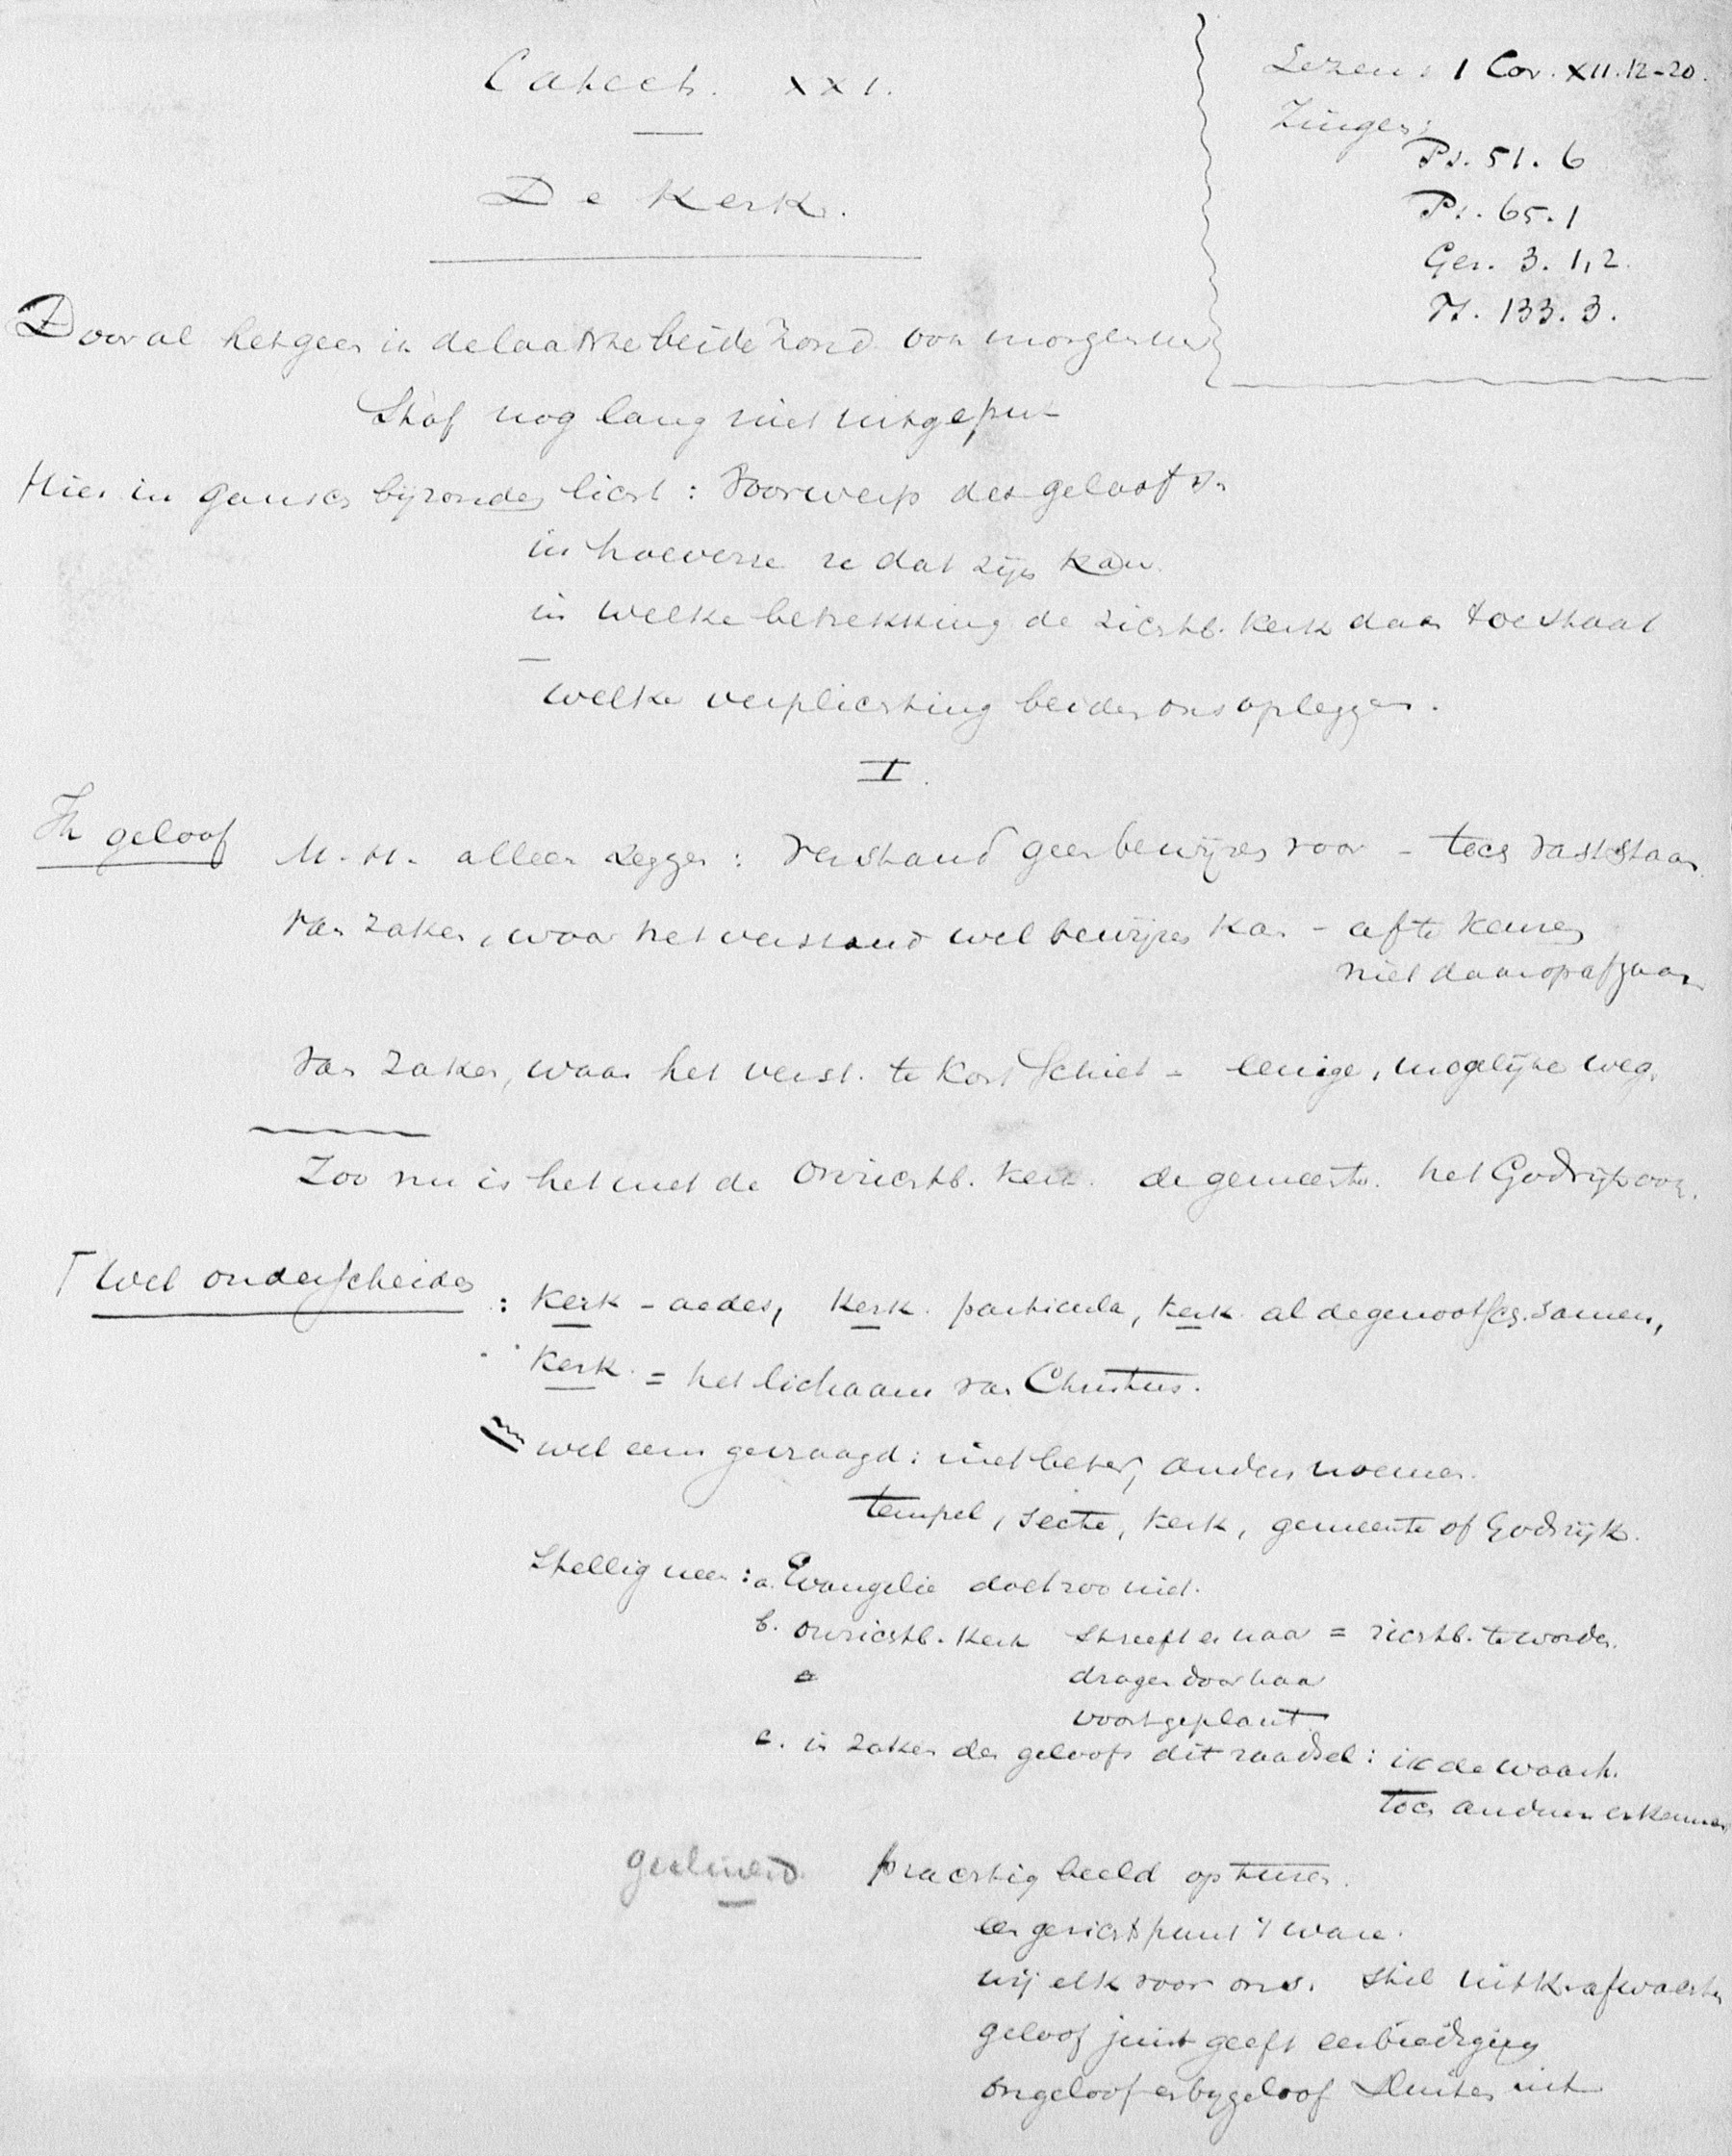 Catech. XXI.
De Kerk.
Lezen: 1 Cor. XII. 12-20.
Zingen:
Ps. 51. 6
Ps. 65. 1
Gez. 3. 1, 2.
Ps. 133. 3.
Door al hetgeen in de laatste beide Zond. voormorgens
Stof nog lang niet uitgeput
Hier in gansch bijzonder licht: Voorwerp des geloofs.
in hoeverre ze dat zijn kan.
in welke betrekking de zichtb. Kerk daar toe staat
welke verplichting beiden ons opleggen.
I.
Ik geloof
M. H. alleen zeggen: verstand geen bewijzen voor - toch vaststaan.
Van zaken, waar het verstand wel bewijzen kan - af te keuren
niet daarop afgaan
Van zaken, waar het verst. te kort schiet - eenige, mogelijke weg.
Zoo nu is het met de onzichtb. kerk. de gemeente. het Godsrijk ook.
Wel onderscheiden
: Kerk - aedes, Kerk. particula, Kerk al de genootsch. samen,
Kerk. = het lichaam van Christus.
wel eens gevraagd: niet beter, anders noemen.
tempel, secte, kerk, gemeente of Godsrijk.
Stellig neen: a. Evangelie doet zoo niet.
b. onzichtb. Kerk streeft er naar = zichtb. te worden.
dragen door haar
voortgeplant
c. in zaken des geloofs dit raadsel: ik de waarh.
toch anderen erkennen
prachtig beeld op
een gezichtpunt 't ware.
wij elk voor ons. stil uitk. afwachten
geloof juist geeft eerbiediging
ongeloof en bijgeloof sluiten uit